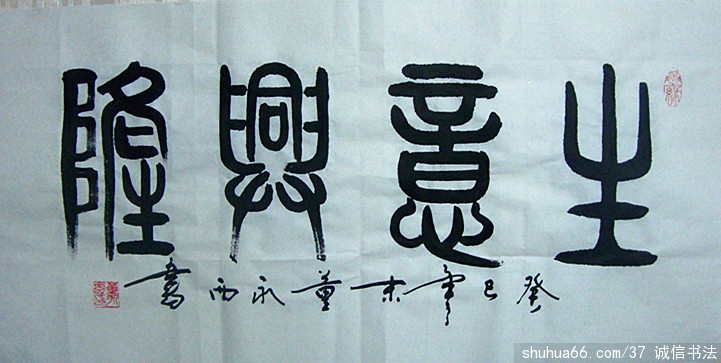 生意興隆
癸巳年末董永西書
shuhua66.com/37 诚信书法